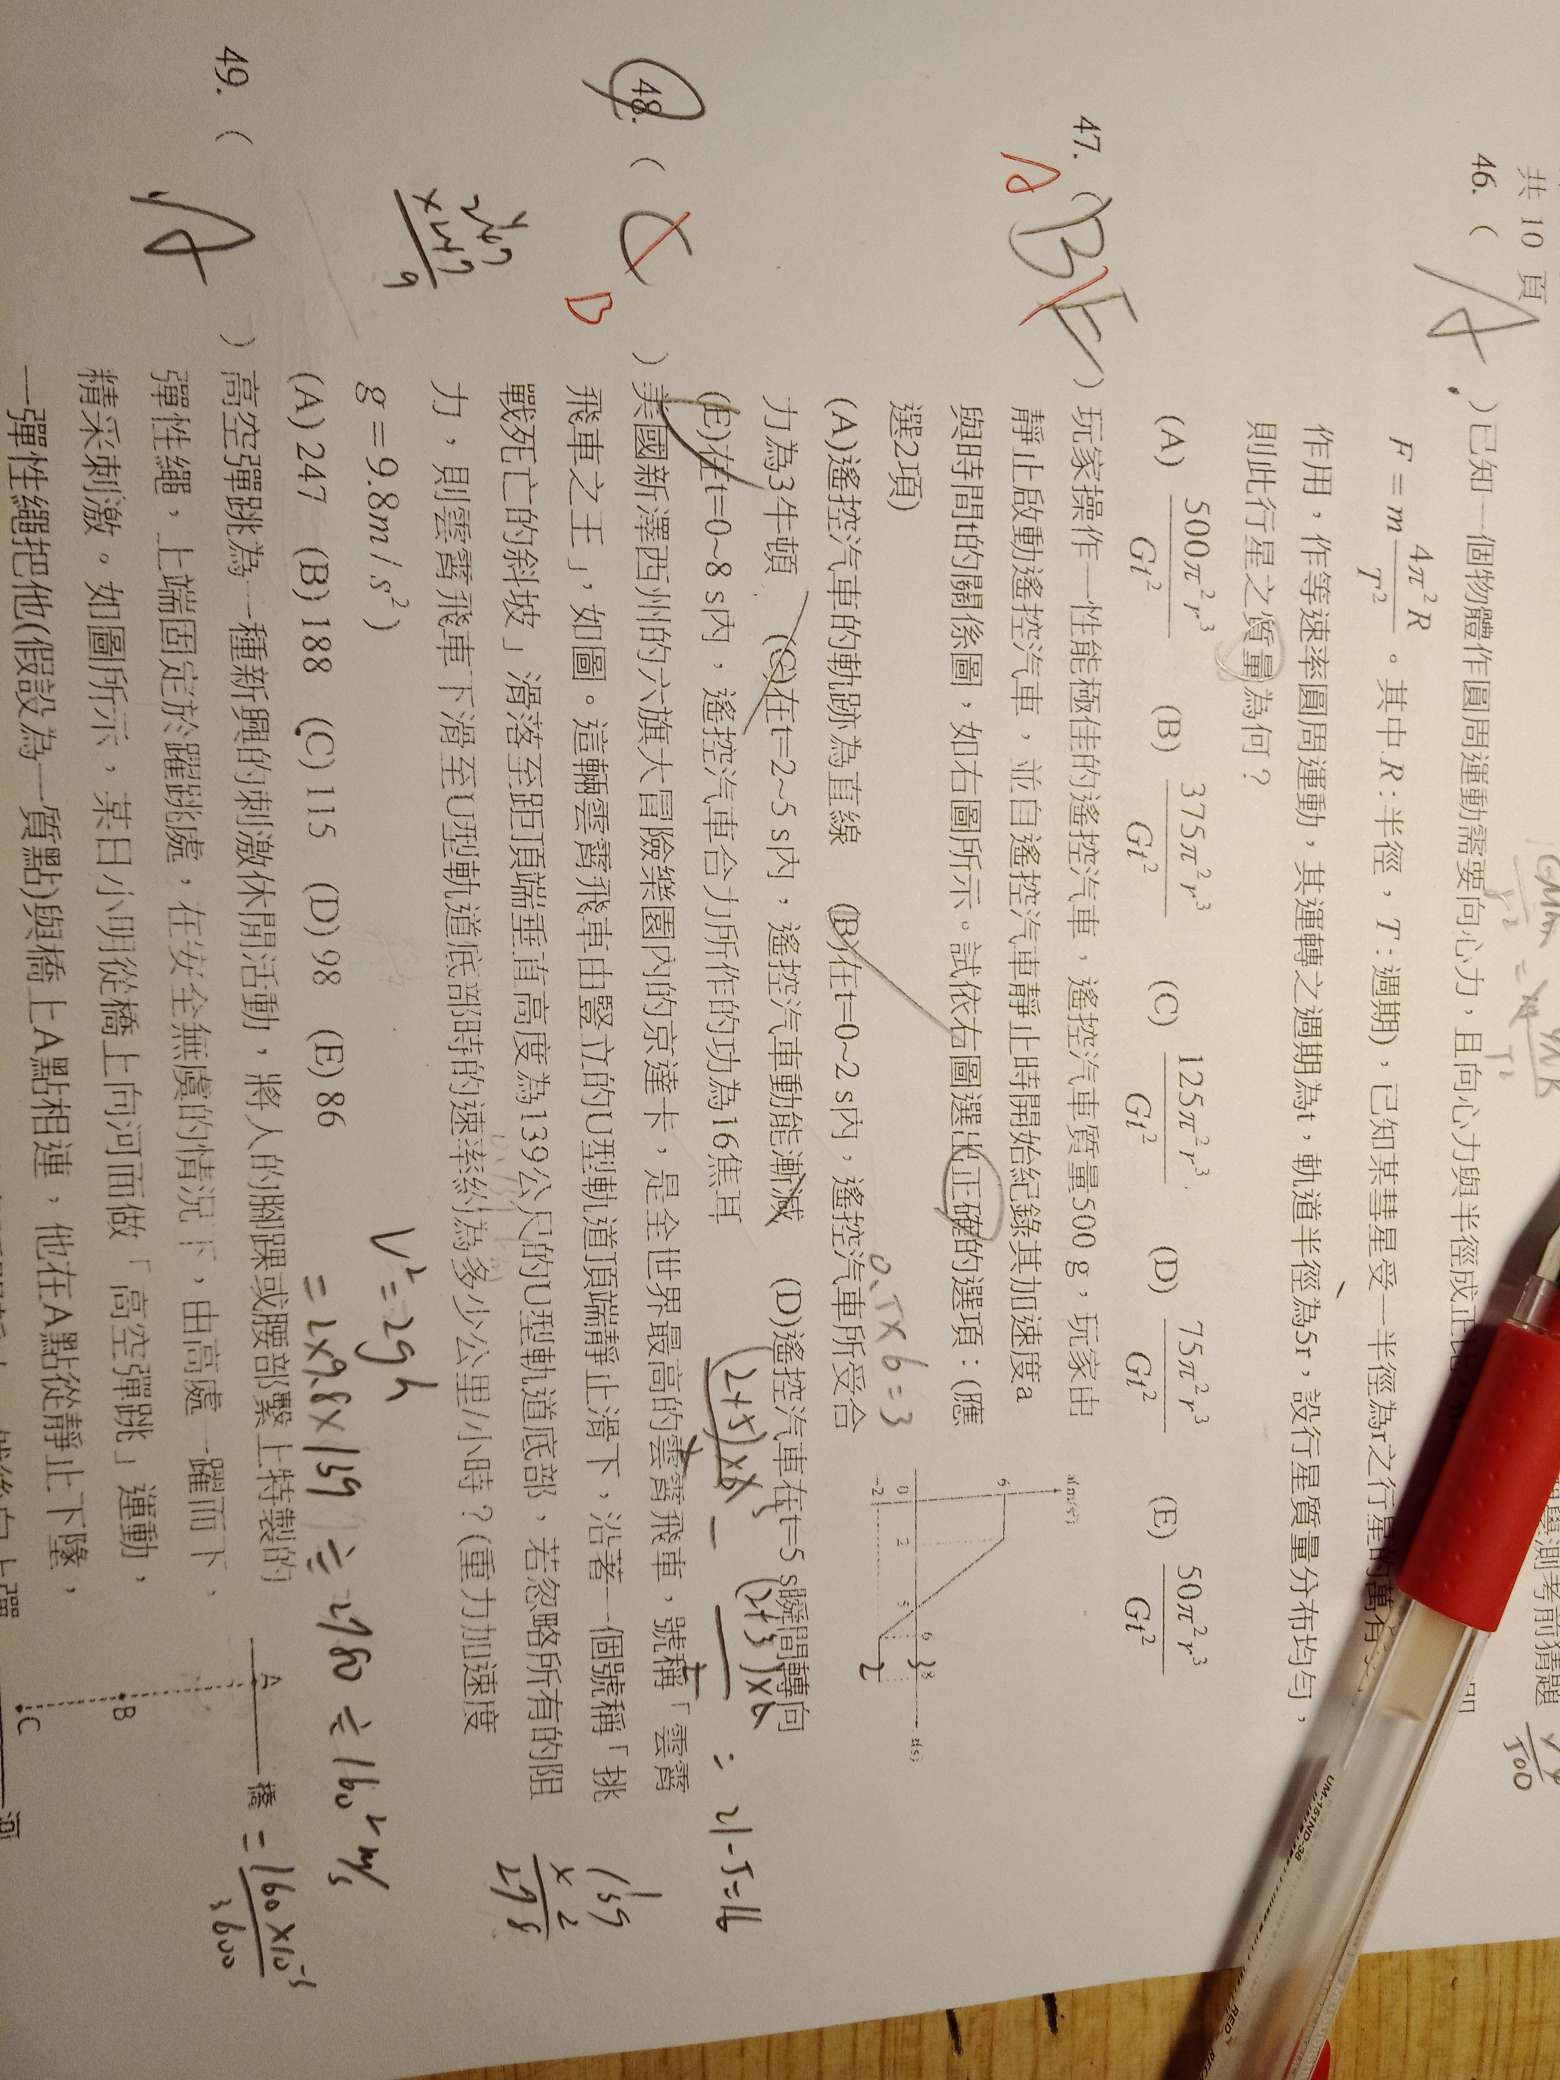 共 10 頁
46. ( A )已知一個物體作圓周運動需要向心力，且向心力與半徑成正比
F = m 4π²R / T² 。其中 R : 半徑，T : 週期)，已知某彗星受一半徑為r之行星的萬有
作用，作等速率圓周運動，其運轉之週期為t，軌道半徑為5r，設行星質量分布均勻，
則此行星之質量為何？
(A) 500π²r³ / Gt² (B) 375π²r³ / Gt² (C) 125π²r³ / Gt² (D) 75π²r³ / Gt² (E) 50π²r³ / Gt²
47. ( BE )玩家操作一性能極佳的遙控汽車，遙控汽車質量500 g，玩家由
靜止啟動遙控汽車，並自遙控汽車靜止時開始紀錄其加速度a
與時間t的關係圖，如右圖所示。試依右圖選出正確的選項：(應
選2項)
a(m/s²)
6
0 2 5 6 8 t(s)
-2
2
(A)遙控汽車的軌跡為直線 (B)在t=0~2 s內，遙控汽車所受合
0.5×6=3
力為3牛頓 (C)在t=2~5 s內，遙控汽車動能漸減 (D)遙控汽車在t=5 s瞬間轉向
(E)在t=0~8 s內，遙控汽車合力所作的功為16焦耳
48. ( C )美國新澤西州的六旗大冒險樂園內的京達卡，是全世界最高的雲霄飛車，號稱「雲霄
D
飛車之王」，如圖。這輛雲霄飛車由豎立的U型軌道頂端靜止滑下，沿著一個號稱「挑
戰死亡的斜坡」滑落至距頂端垂直高度為139公尺的U型軌道底部，若忽略所有的阻
力，則雲霄飛車下滑至U型軌道底部時的速率約為多少公里/小時？(重力加速度
g = 9.8m / s² )
139
× 2
278
V²=2gh
=2×9.8×139
(A) 247 (B) 188 (C) 115 (D) 98 (E) 86
49. ( A )高空彈跳為一種新興的刺激休閒活動，將人的腳踝或腰部繫上特製的
彈性繩，上端固定於躍跳處，在安全無虞的情況下，由高處一躍而下，
精采刺激。如圖所示，某日小明從橋上向河面做「高空彈跳」運動，
一彈性繩把他(假設為一質點)與橋上A點相連，他在A點從靜止下墜，
A 橋
B
C
河
UM-151ND-38
RED